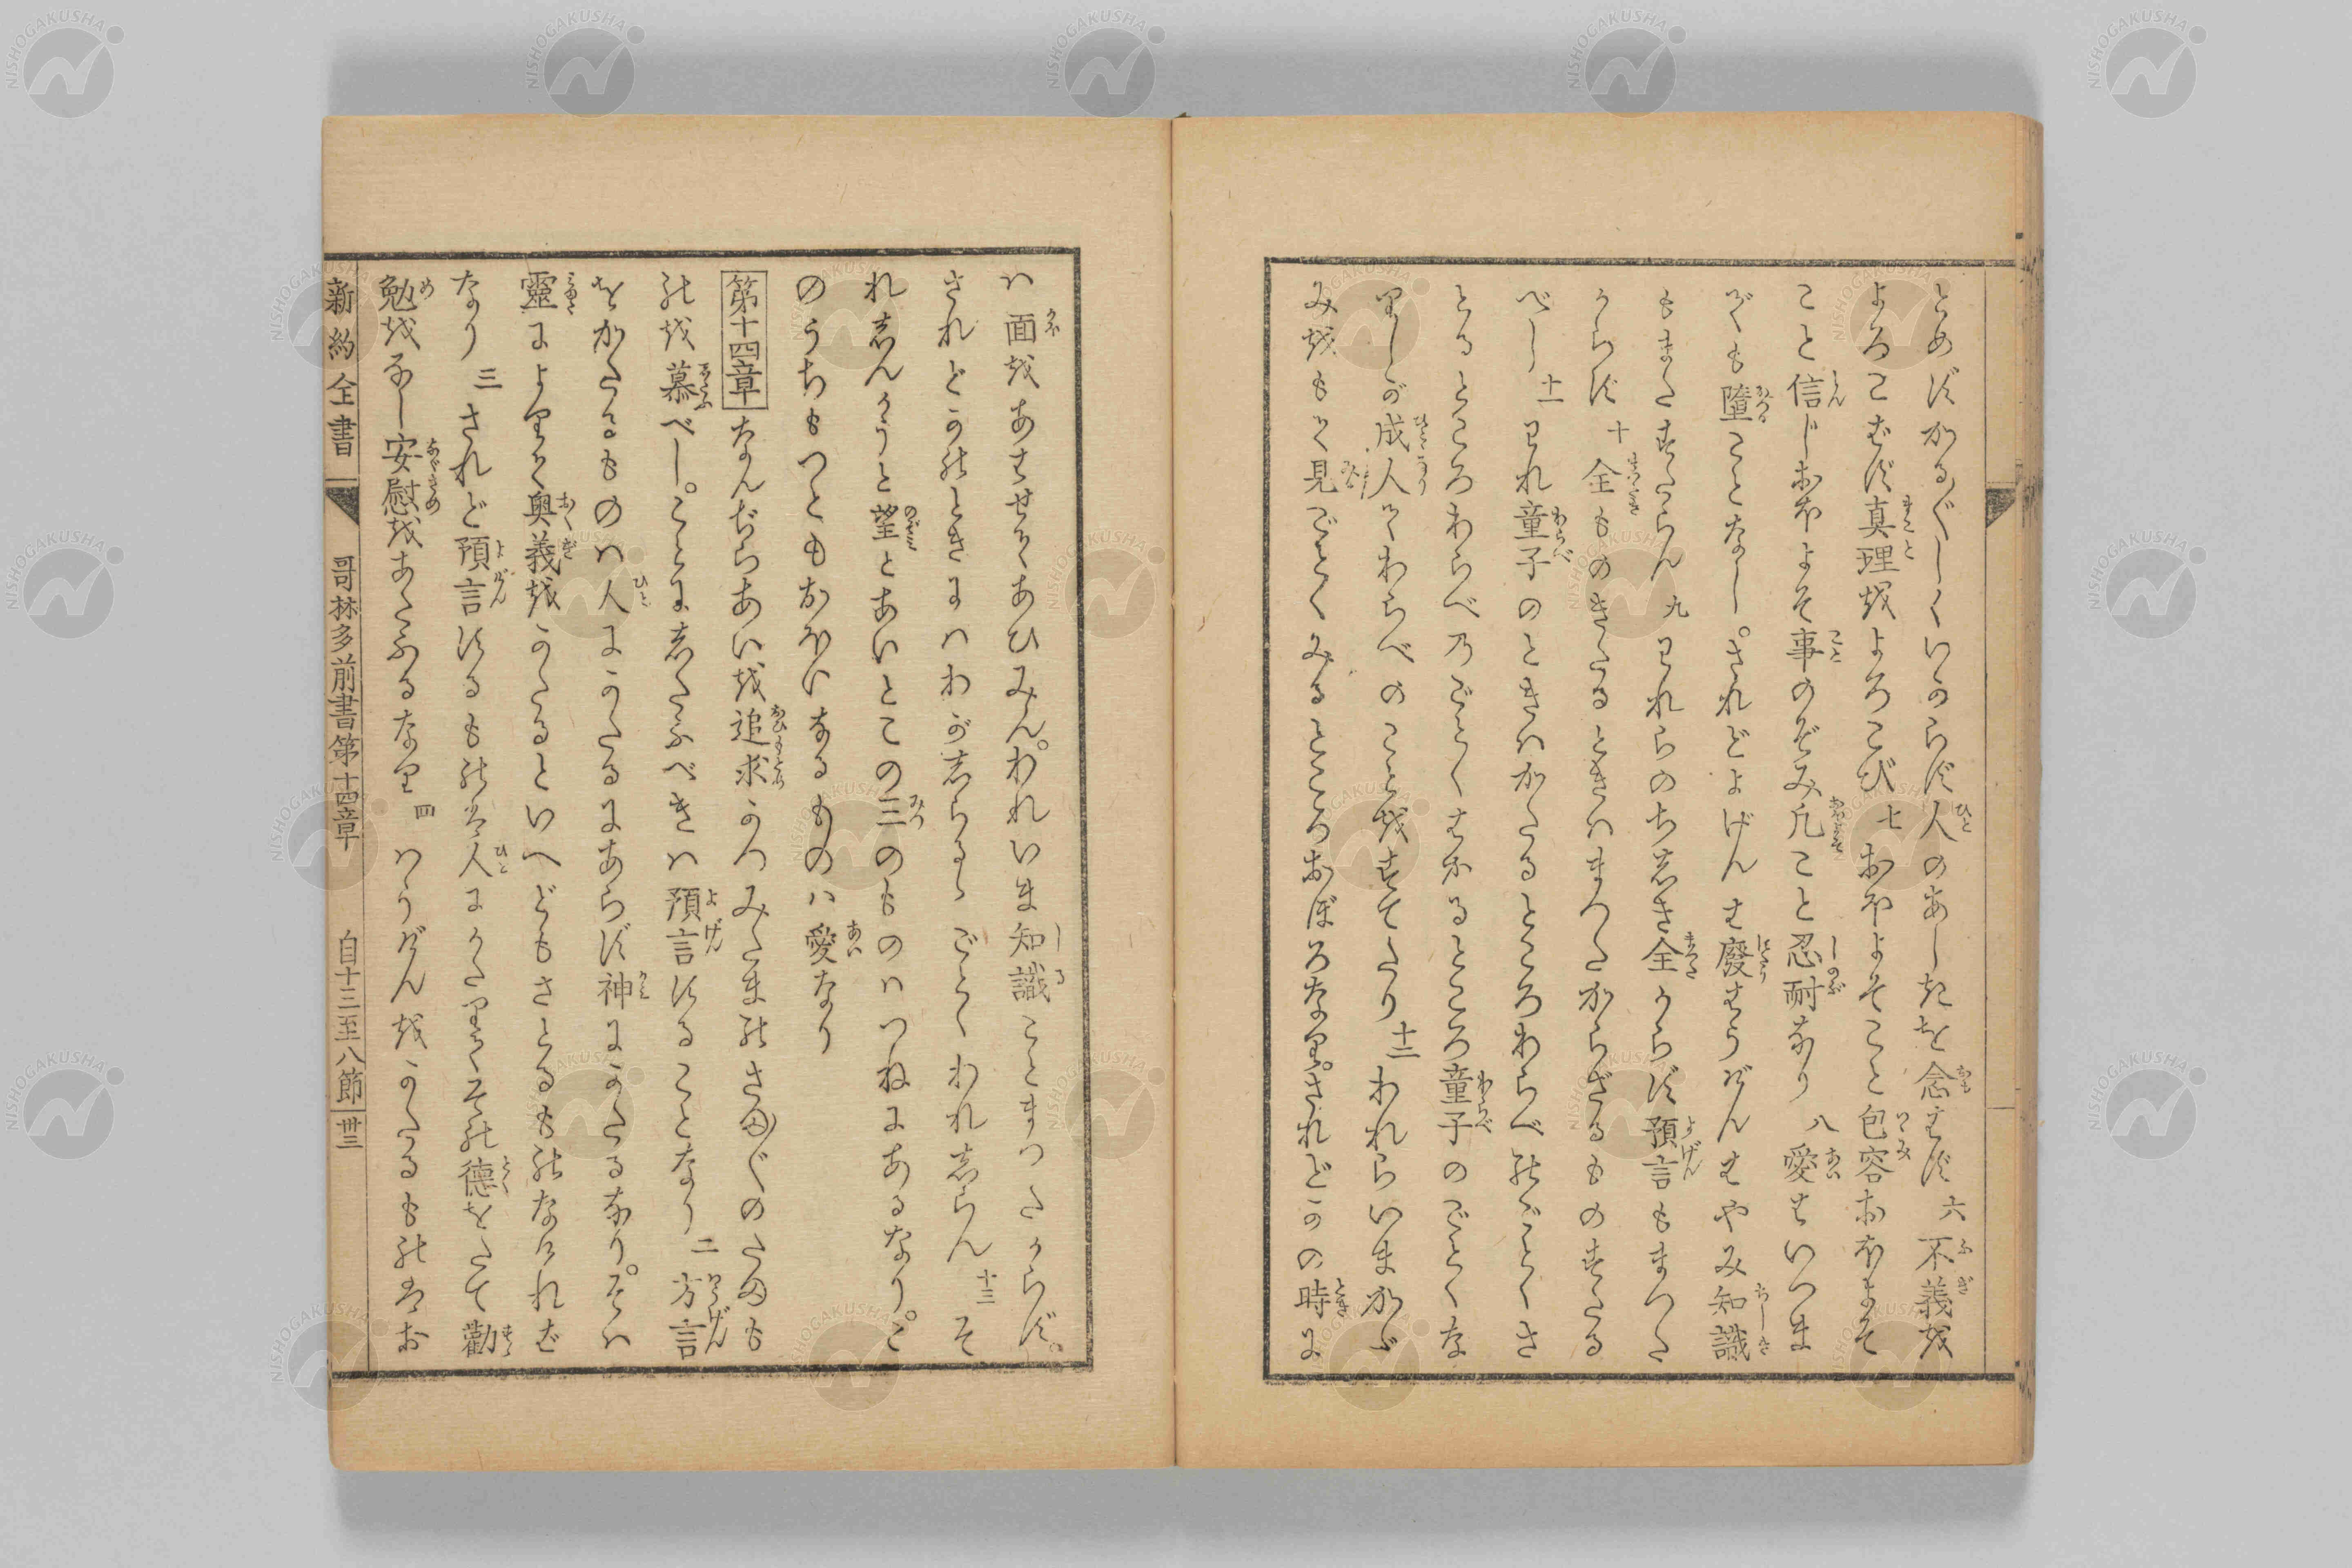 とめずかる〴〵しくいからず人のあしきを念はず六不義を
よろこばず真理をよろこび七おほよそこと包容おほよそ
こと信じおほよそ事のぞみ凡こと忍耐なり八愛はいつま
でも墮ことなし。されどよげんは廢はうげんはやみ知識
もまたすたらん九われらのち志き全からず預言もまつた
からず十全ものきたるときハまつたからざるものすたる
べし十一われ童子のときハかたるところわらべのごとくさ
とるところわらべのごとくはかるところ童子のごとくな
りしが成人てわらべのことをすてたり十二われらいまかゞ
みをもて見ごとくみるところおぼろなり。されどかの時に
ハ面をあはせてあひみん。われいま知識ことまつたからず。
されどかのときにハわが志らるゝごとくわれ志らん十三そ
れ志んかうと望とあいとこの三のものハつねにあるなり。こ
のうちもつともおほいなるものハ愛なり
第十四章なんぢらあいを追求かつみたまのさまぐのたまも
のを慕べし。ことに志たふべきハ預言することなり二方言
をかたるものハ人にかたるにあらず神にかたるなり。そハ
靈によりて奥義をかたるといへどもさとるものなければ
なり三されど預言するものは人にかたりてその德をたて勸
勉をなし安慰をあたふるなり四はうげんをかたるものはお
新約全書
哥林多前書第十四章
自十三至八節
卅三
NISHOGAKUSHA